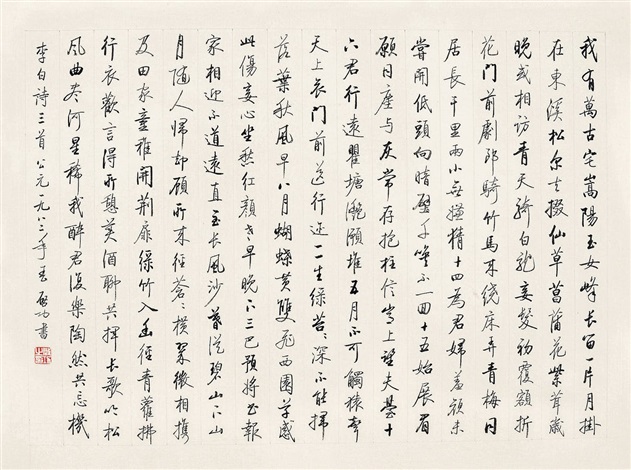 我有萬古宅嵩陽玉女峰長留一片月掛
在東溪松尔去掇仙草菖蒲花紫茸歲
晚或相訪青天騎白龍妾髮初覆額折
花門前劇郎騎竹馬來繞床弄青梅同
居長干里兩小無嫌猜十四為君婦羞顏未
嘗開低頭向暗壁千喚不一回十五始展眉
願同塵与灰常存抱柱信豈上望夫臺十
六君行遠瞿塘灩澦堆五月不可觸猿聲
天上哀門前送行迹一一生綠苔〻深不能掃
落葉秋風早八月蝴蝶黃雙飛西園草感
此傷妾心坐愁紅顏老早晚下三巴預將書報
家相迎不道遠直至長風沙暮從碧山下山
月隨人歸却顧所來徑蒼〻橫翠微相攜
及田家童稚開荊扉綠竹入幽徑青蘿拂
行衣歡言得所憩美酒聊共揮長歌吟松
風曲盡河星稀我醉君復樂陶然共忘機
李白詩三首公元一九八三年春啟功書